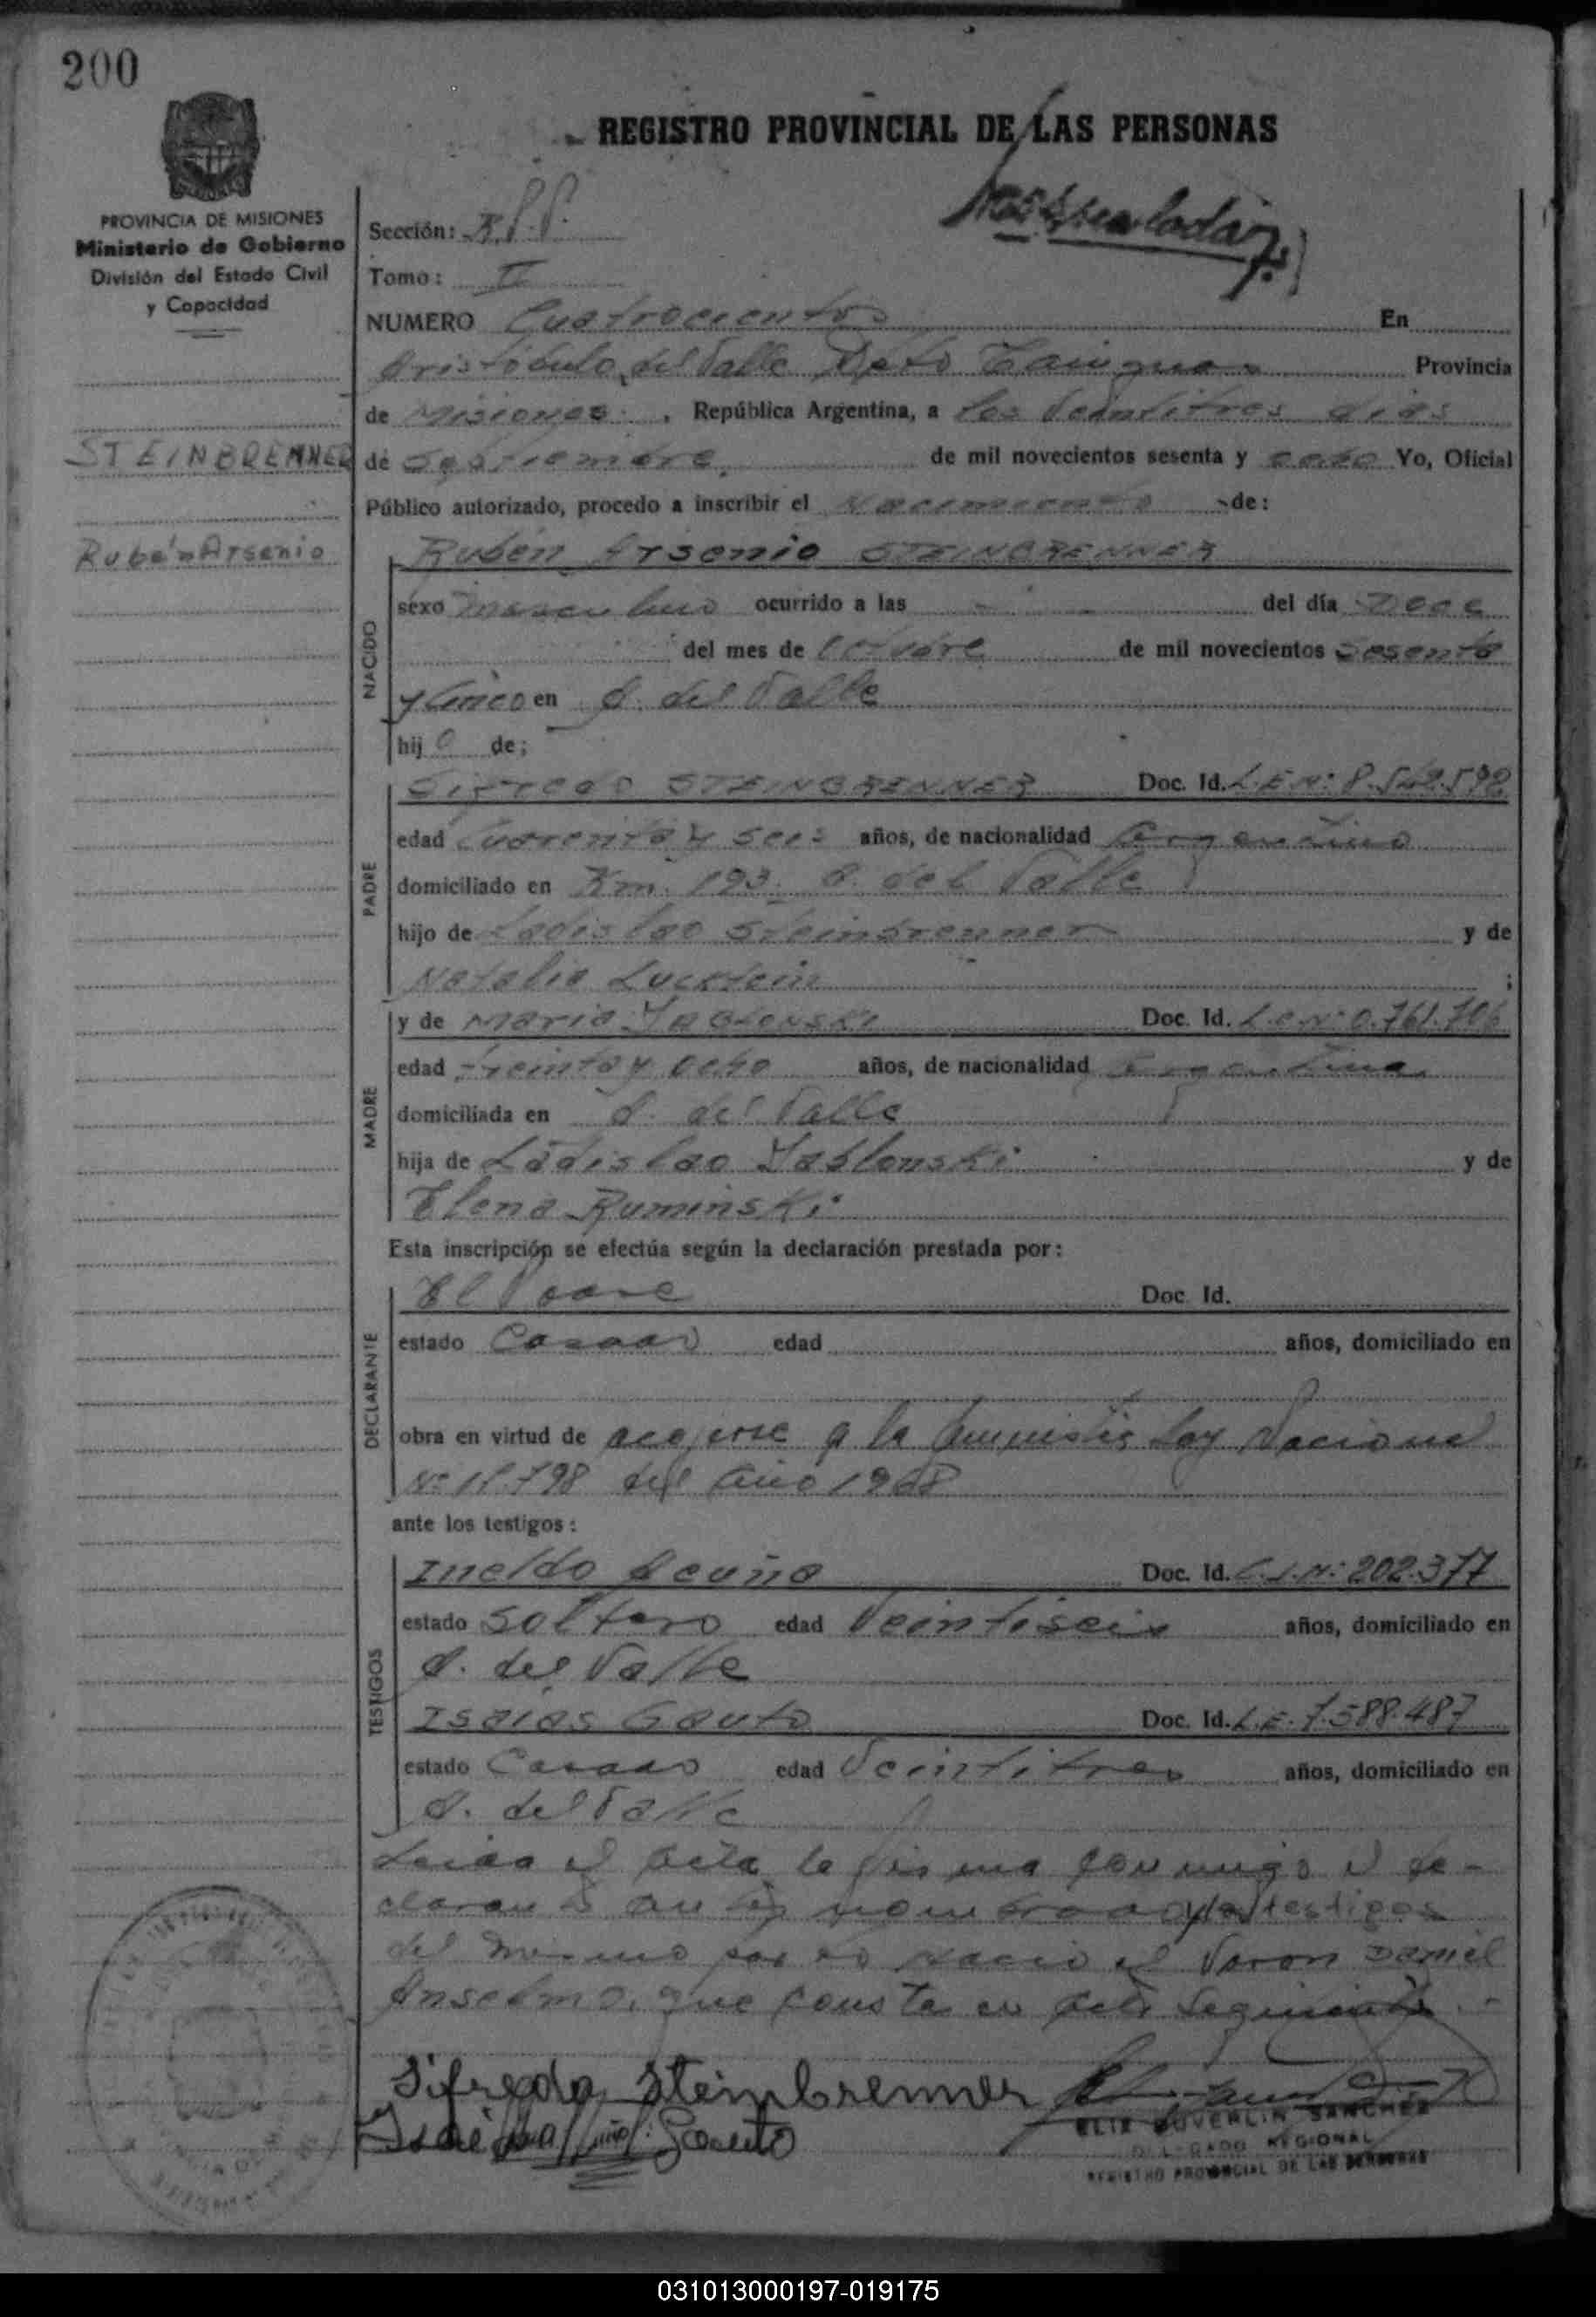 200
REGISTRO PROVINCIAL DE LAS PERSONAS
PROVINCIA DE MISIONES
Ministerio de Gobierno
División del Estado Civil
y Capacidad
Sección: R.P.P.
Tomo: II
NUMERO Cuatrocientos En
Aristóbulo del Valle Dpto Cainguas Provincia
de Misiones. República Argentina, a los Veintitres dias
STEINBRENNER
de Septiembre de mil novecientos sesenta y ocho Yo, Oficial
Público autorizado, procedo a inscribir el Nacimiento de:
Rubén Arsenio
Rubén Arsenio STEINBRENNER
NACIDO
sexo masculino ocurrido a las - - del día Doce
del mes de Octubre de mil novecientos Sesenta
y Cinco en A. del Valle
hijo de;
PADRE
Sifredo STEINBRENNER Doc. Id. L.E.Nº 8.542.592
edad Cuarenta y seis años, de nacionalidad Argentino
domiciliado en Km. 193. A. del Valle
hijo de Ladislao Steinbrenner y de
Natalia ;
MADRE
y de Maria YABLONSKI Doc. Id. L.C.Nº 0.761.706
edad treinta y ocho años, de nacionalidad Argentina
domiciliada en A. del Valle
hija de Ladislao Yablonski y de
Elena Ruminski
Esta inscripción se efectúa según la declaración prestada por:
DECLARANTE
El Padre Doc. Id.
estado Casado edad años, domiciliado en
obra en virtud de acojerse a la Amnistia Ley Nacional
Nº 17.798 del Año 1968
ante los testigos:
TESTIGOS
Ineldo Acuña Doc. Id. C.I.Nº 202.377
estado Soltero edad Veintiseis años, domiciliado en
A. del Valle
Isaias Gauto Doc. Id. L.E. 7.588.487
estado Casado edad Veintitres años, domiciliado en
A. del Valle
Leida el acta la firma conmigo el de-
clarante antes nombrado y los testigos
del mismo nacio el Varon Daniel
Anselmo, que consta en acta Seguiente.-
Sifredo Steinbrenner
Gauto
SANCHEZ
DELEGADO REGIONAL
REGISTRO PROVINCIAL DE LAS PERSONAS
031013000197-019175